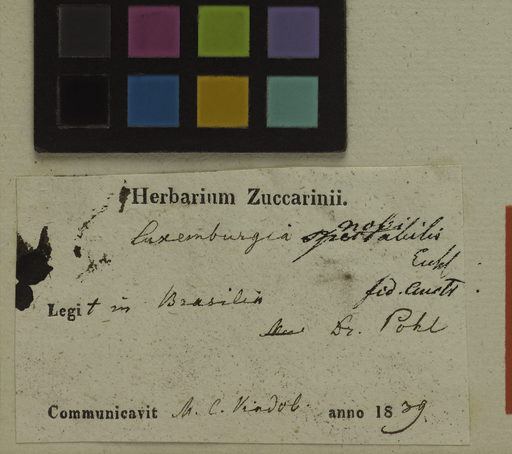 Herbarium Zuccarinii.
Luxemburgia nobilis
Eichl
Legit in Brasilia fid. auct
Dr. Pohl
Communicavit M. C. Vindob. anno 1839.